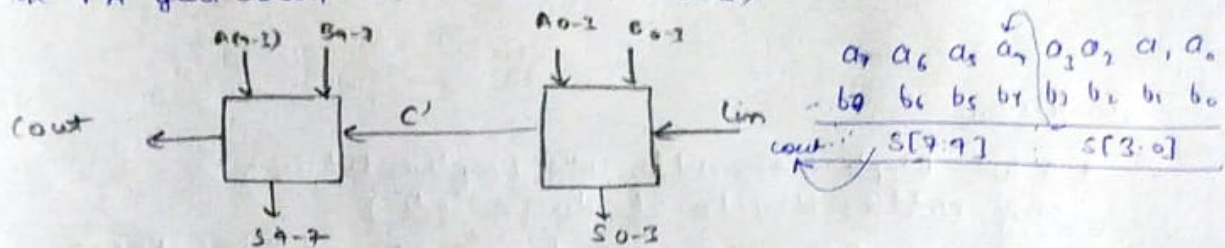 A0-3 B0-3
A(4-7) B4-7
Cout C' Cin
S4-7 S0-3
a7 a6 a5 a4 a3 a2 a1 a0
b7 b6 b5 b4 b3 b2 b1 b0
cout S[7:4] S[3:0]